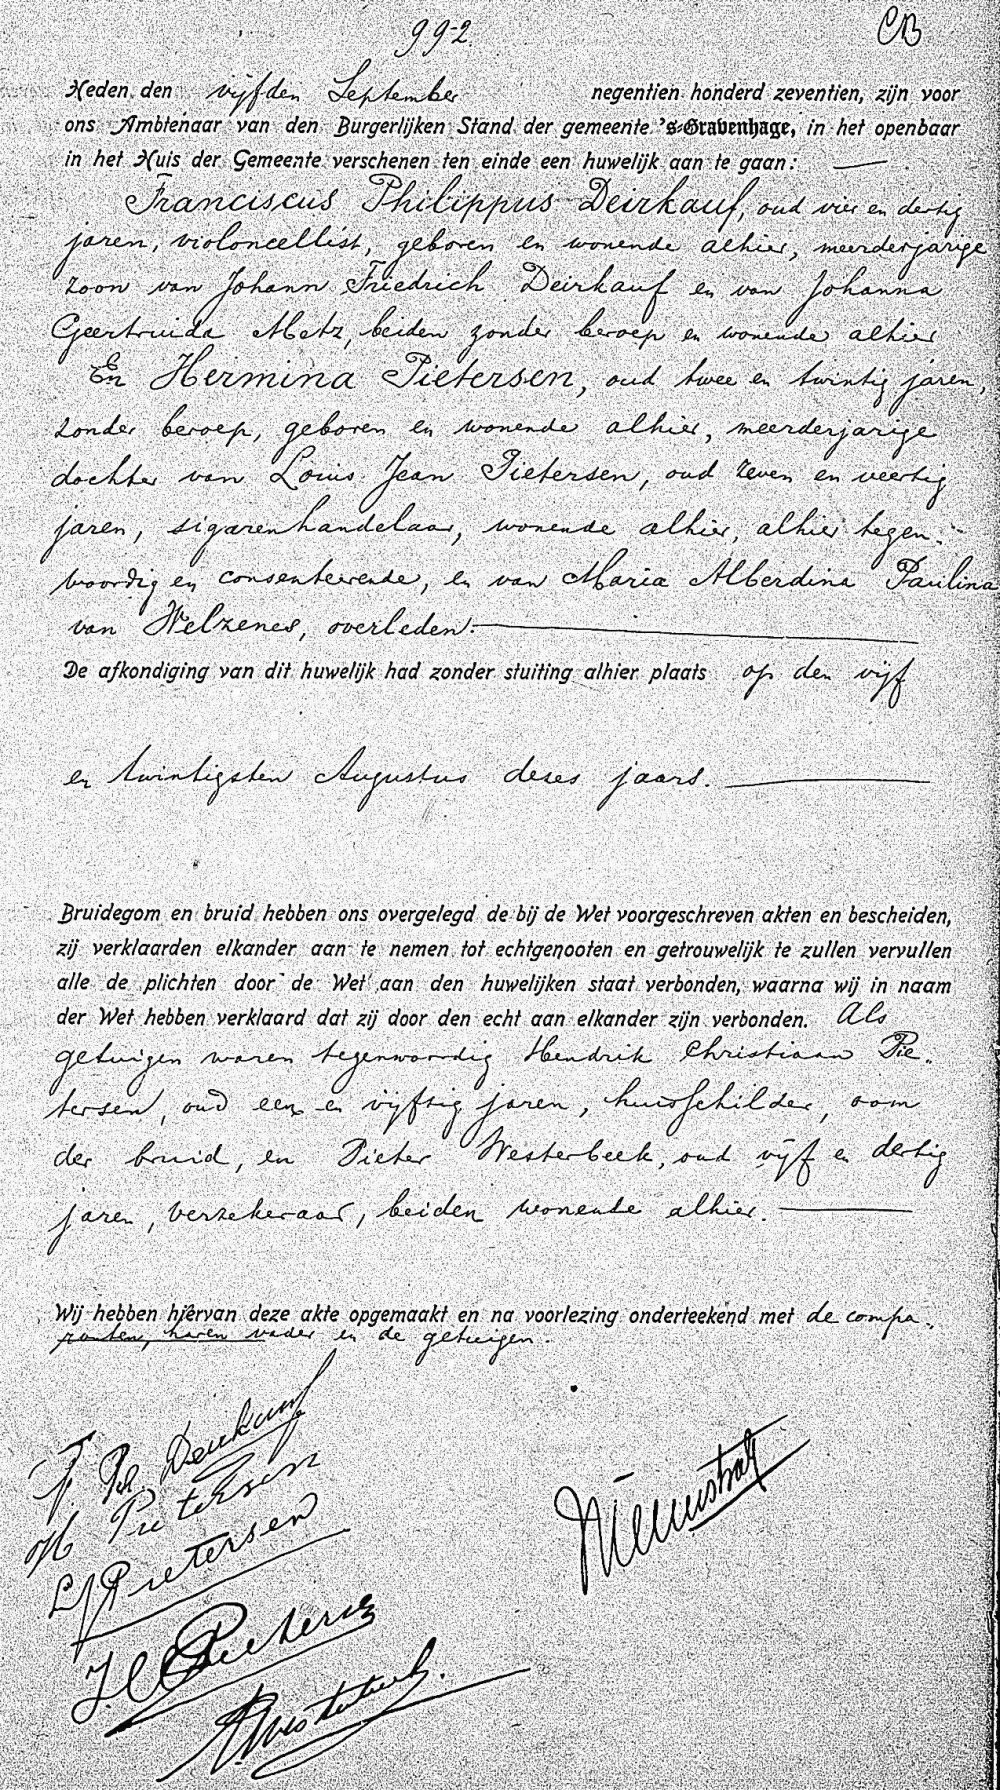 992
CB
Heden den vijfden September negentien honderd zeventien, zijn voor
ons Ambtenaar van den Burgerlijken Stand der gemeente 's-Gravenhage, in het openbaar
in het Huis der Gemeente verschenen ten einde een huwelijk aan te gaan:
Franciscus Philippus Deirkauf, oud vier en dertig
jaren, violoncellist, geboren en wonende alhier, meerderjarige
zoon van Johann Friedrich Deirkauf en van Johanna
Geertruida Metz, beiden zonder beroep en wonende alhier
En Hermina Pietersen, oud twee en twintig jaren,
zonder beroep, geboren en wonende alhier, meerderjarige
dochter van Louis Jean Pietersen, oud zeven en veertig
jaren, sigarenhandelaar, wonende alhier, alhier tegen-
woordig en consenteerende, en van Maria Alberdina Paulina
van Welzenes, overleden.
De afkondiging van dit huwelijk had zonder stuiting alhier plaats op den vijf
en twintigsten Augustus dezes jaars.
Bruidegom en bruid hebben ons overgelegd de bij de Wet voorgeschreven akten en bescheiden,
zij verklaarden elkander aan te nemen tot echtgenooten en getrouwelijk te zullen vervullen
alle de plichten door de Wet aan den huwelijken staat verbonden, waarna wij in naam
der Wet hebben verklaard dat zij door den echt aan elkander zijn verbonden. Als
getuigen waren tegenwoordig Hendrik Christiaan Pie-
tersen, oud een en vijftig jaren, huisschilder, oom
der bruid, en Pieter Westerbeek, oud vijf en dertig
jaren, verzekeraar, beiden wonende alhier.
Wij hebben hiervan deze akte opgemaakt en na voorlezing onderteekend met de compa-
ranten, haren vader en de getuigen.
F. Ph. Deirkauf
H Pietersen
L J Pietersen
H. C. Pietersen
P. Westerbeek.